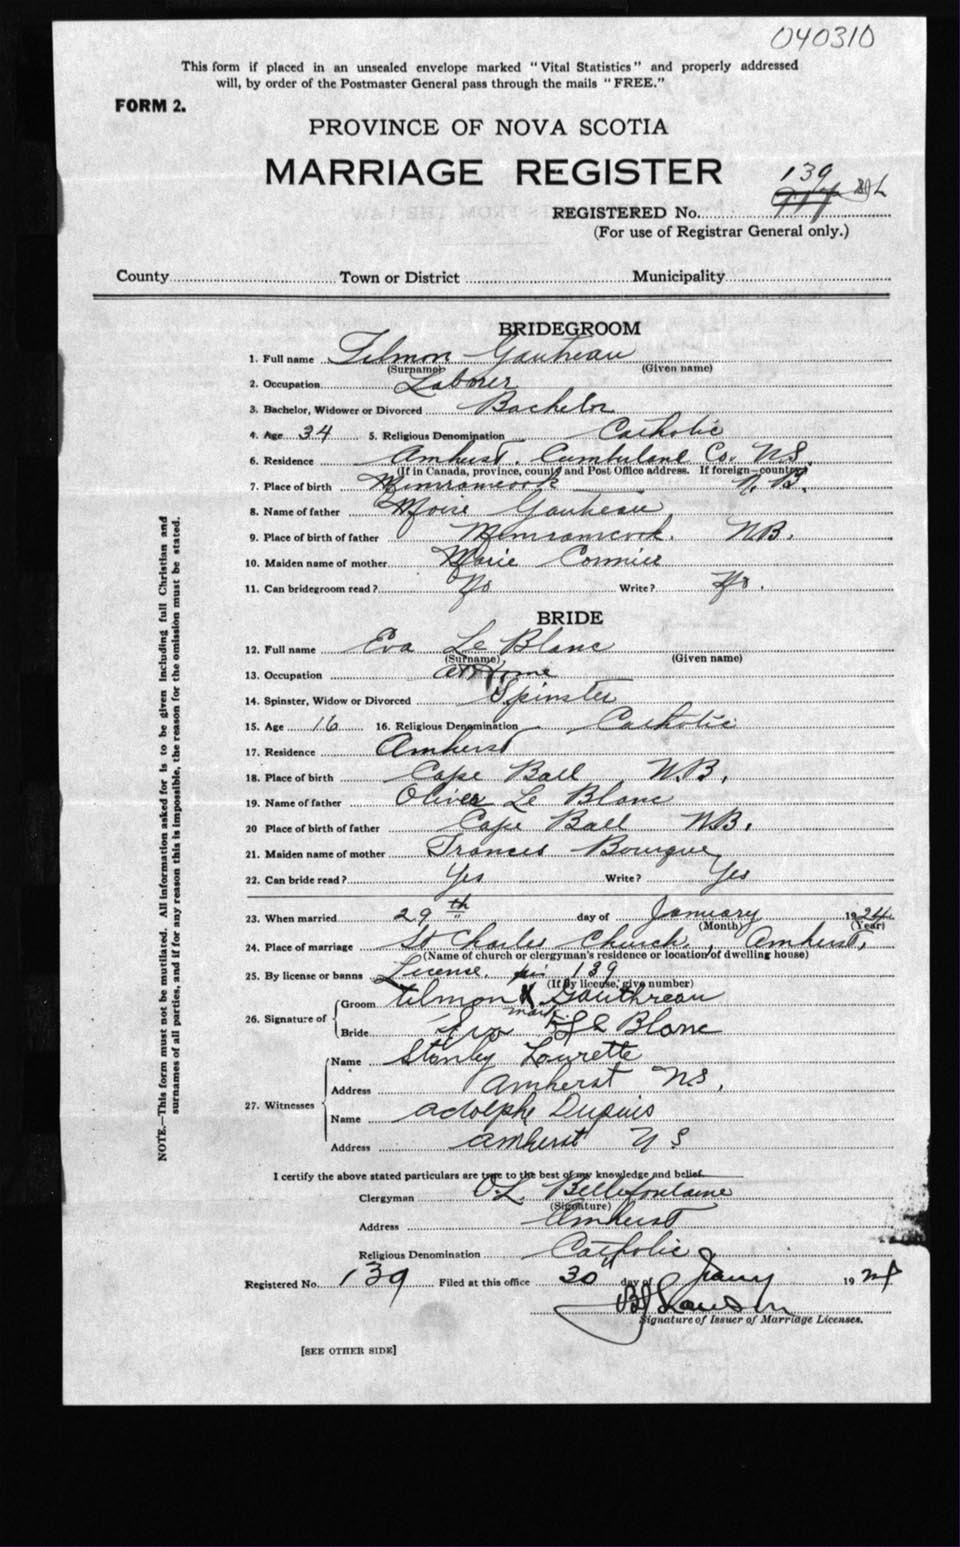 040310
This form if placed in an unsealed envelope marked "Vital Statistics" and properly addressed
will, by order of the Postmaster General pass through the mails "FREE."
FORM 2.
PROVINCE OF NOVA SCOTIA
MARRIAGE REGISTER
139
REGISTERED No.
(For use of Registrar General only.)
County Town or District Municipality
BRIDEGROOM
1. Full name Tilmon Gautreau
(Surname) (Given name)
2. Occupation Laborer
3. Bachelor, Widower or Divorced Bachelor
4. Age 34 5. Religious Denomination Catholic
6. Residence Amherst, Cumberland Co. N.S.
(If in Canada, province, county and Post Office address. If foreign—country)
7. Place of birth Memramcook N.B.
8. Name of father Gautreau
9. Place of birth of father Memramcook. NB.
10. Maiden name of mother Marie Cormier
11. Can bridegroom read? No Write? No.
BRIDE
12. Full name Eva Le Blanc
(Surname) (Given name)
13. Occupation at Home
14. Spinster, Widow or Divorced Spinster
15. Age 16 16. Religious Denomination Catholic
17. Residence Amherst
18. Place of birth Cape Ball N.B.
19. Name of father Oliver Le Blanc
20 Place of birth of father Cape Ball N.B.
21. Maiden name of mother Frances Bourque
22. Can bride read? Yes Write? Yes
23. When married 29th day of January 1924
(Month) (Year)
24. Place of marriage St Charles Church, Amherst,
(Name of church or clergyman's residence or location of dwelling house)
25. By license or banns License 139
(If by license, give number)
26. Signature of Groom Tilmon X Gauthreau
mark
Bride Eva Le Blanc
27. Witnesses Name Stanley Lourette
Address Amherst NS.
Name Adolphe Dupuis
Address Amherst N S
I certify the above stated particulars are true to the best of my knowledge and belief.
Clergyman O.L. Bellefontaine
(Signature)
Address Amherst
Religious Denomination Catholic
Registered No. 139 Filed at this office 30 day of Jany 1924
Signature of Issuer of Marriage Licenses.
[SEE OTHER SIDE]
NOTE.—This form must not be mutilated. All information asked for is to be given including full Christian and
surnames of all parties, and if for any reason this is impossible, the reason for the omission must be stated.